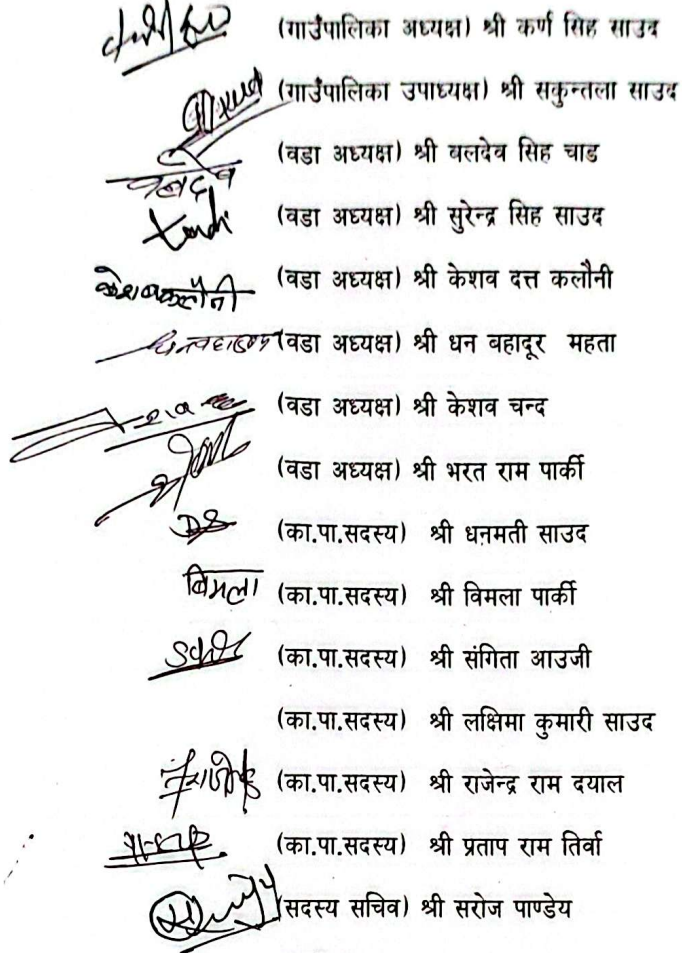 (गाउँपालिका अध्यक्ष) श्री कर्ण सिह साउद
(गाउँपालिका उपाध्यक्ष) श्री सकुन्तला साउद
बलदेव (वडा अध्यक्ष) श्री बलदेव सिह चाड
(वडा अध्यक्ष) श्री सुरेन्द्र सिह साउद
केशब कलौनी (वडा अध्यक्ष) श्री केशव दत्त कलौनी
(वडा अध्यक्ष) श्री धन बहादूर महता
(वडा अध्यक्ष) श्री केशव चन्द
(वडा अध्यक्ष) श्री भरत राम पार्की
DS (का.पा.सदस्य) श्री धनमती साउद
बिमला (का.पा.सदस्य) श्री विमला पार्की
(का.पा.सदस्य) श्री संगिता आउजी
(का.पा.सदस्य) श्री लक्षिमा कुमारी साउद
(का.पा.सदस्य) श्री राजेन्द्र राम दयाल
(का.पा.सदस्य) श्री प्रताप राम तिर्वा
(सदस्य सचिव) श्री सरोज पाण्डेय